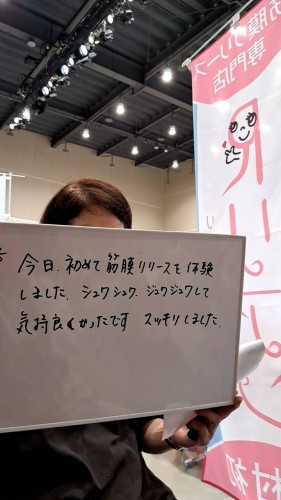 今日、初めて筋膜リリースを体験
しました。シュワシュワ、ジュワジュワして
気持良くかったです スッキリしました。
筋膜リリース
専門店
村初